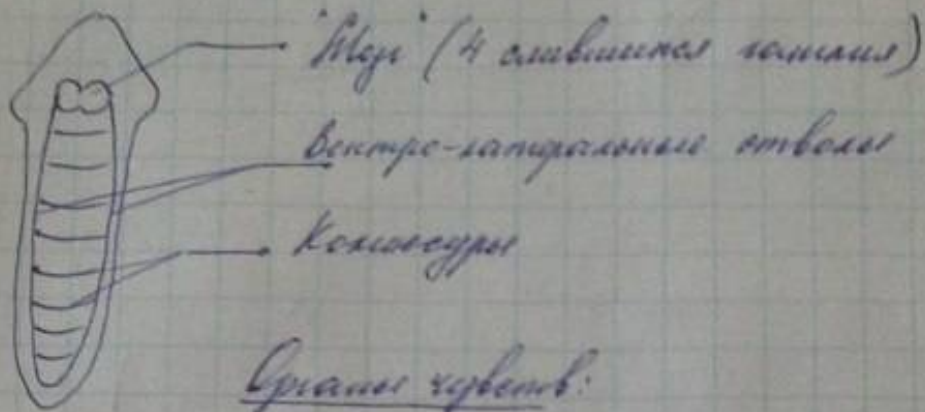 "Мозг" (4 слившихся ганглия)
Вентро-латеральные стволы
Комиссуры
Органы чувств: